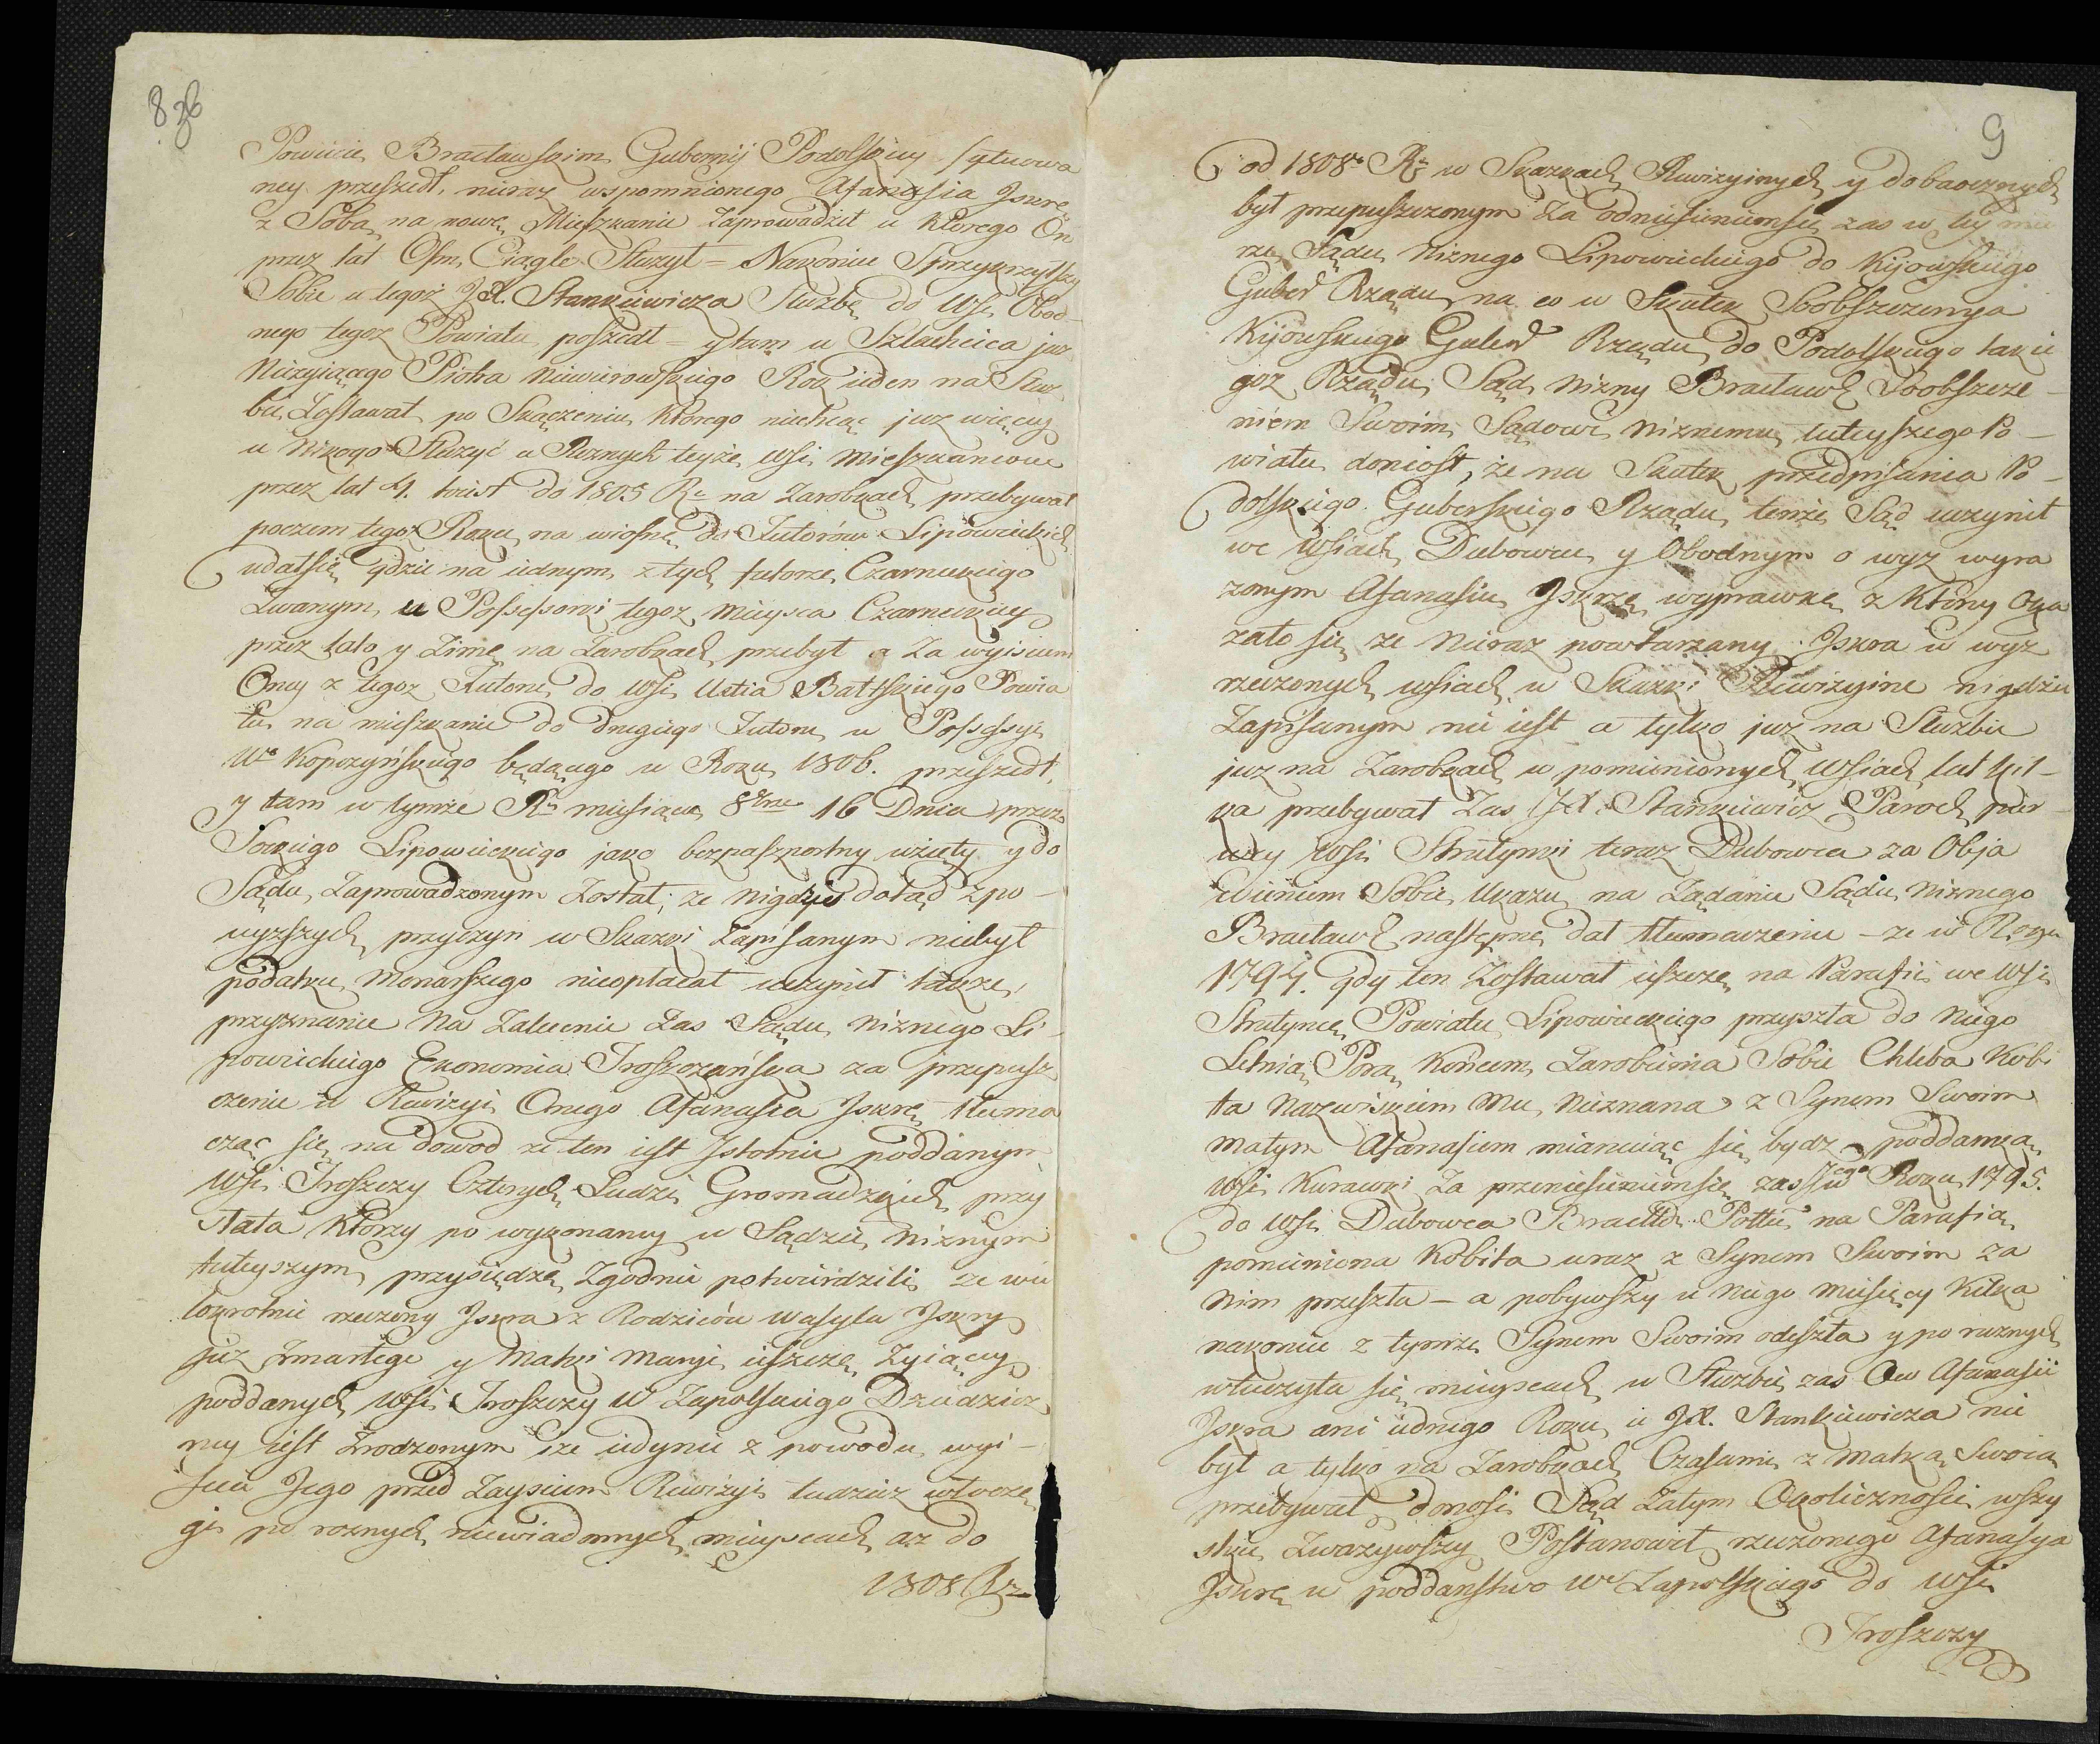 8 zb
Powiecie Bracławskim Gubernij Podolskiey sytuowa
ney przeszedł, nieraz wspomnionego Afanasia Jskrę
z Sobą na nowe Mieszkanie zaprowadził u ktorego On
przez lat Osm Ciągle Służył = Nakoniec Sprzykrzywszy
Sobie u tegoż JX. Stankiewicza Służbę do Wsi Obod-
nego tegoż Powiatu poszedł = y tam u Szlachcica już
Nieżyjącego Piotra Niewierowskiego Rok ieden na Służ
bie Zostawał po Skączeniu ktorego niechcąc już więcey
u Nikogo Służyć u Rożnych teyże Wsi Mieszkancow
przez lat 4. to iest do 1805 Rq na Zarobkach przebywał
poczem tegoż Roku na wiosnę do Futorów Lipowieckich
udał się gdzie na iednym z tych futorze Czarneckiego
Zwanym u Possessorki tegoż mieysca Czarneckiey
przez lato y Zimę na Zarobkach przebył a Za wyisciem
Oney z tegoż Futoru do Wsi Ustia Baltskiego Powia
tu na mieszkanie do drugiego Futoru w Possessyi
Wo Kopczyńskiego będącego w Roku 1806. przeszedł,
y tam w tymże Rq miesiąca 8bra 16 Dnia przez
Sockiego Lipowieckiego jako bezpaszportny wzięty y do
Sądu Zaprowadzonym Został; że nigdzie dotąd z po-
wyższych przyczyn w Skazki Zapisanym niebył
podatku Monarszego nieopłacał uczynił takoże
przyznanie Na Zalecenie Zas Sądu Niżnego Li-
powieckiego Ekonomia Troszczańska za przepusz
czenie w Rewizyi Onego Afanasia Jskrę tłuma
cząc się na dowod że ten iest Jstotnie poddanym
Wsi Troszczy Czterych Ludzi Gromadzkich przy
słała ktorzy po wykonaney w Sądzie Niżnym
tuteyszym przysiędze Zgodnie potwierdzili że wie
lokrotnie rzeczony Jskra z Rodziców Wasyla Jskry
już Zmarłego y Matki Maryi ieszcze Żyiącey
poddanych Wsi Troszczy W Zapolskiego Dziedzicz
ney iest Zrodzonym że iedynie z powodu wyi-
scia Jego przed Zaysciem Rewizyi tudzież włoczę
gi po rożnych niewiadomych mieyscach aż do
1808 Rq
9
od 1808o Rq w Skazkach Rewizyinych y dobaocznych
był przepuszczonym Za odniesieniem się zas w tey mie
rze Sądu Niżnego Lipowieckiego do Kijowskiego
Guber Rządu na co w Skutek Soobszczenya
Kijowskiego Guber Rządu do Podolskiego takie
goż Rządu Sąd Niżny Bracławs Soobszcze-
niem Swoim Sądowi Niżnemu tuteyszego Po-
wiatu doniosł, że na Skutek przedpisania Po-
dolskiego Guberskiego Rządu tenże Sąd uczynił
we Wsiach Dubowcu y Obodnym o wyż wyra
żonym Afanasiu Jskrze wyprawkę z ktorey Oka
zało się że Nieraz powtarzany Jskra w wyż
rzeczonych wsiach w Skazki Rewizyine nigdzie
Zapisanym nie iest a tylko już na Służbie
już na Zarobkach w pomienionych Wsiach lat kil-
ka przebywał Zas JX. Stankiewicz Paroch pier
wey Wsi Strutynki teraz Dubowca za Obja
wieniem Sobie Ukazu na Żądanie Sądu Niżnego
Bracławs następne dał tłumaczenie - że w Roku
1794. gdy ten Zostawał ieszcze na Parafii we Wsi
Strutynce Powiatu Lipowieckiego przyszła do Niego
Letnią Porą końcem Zarobienia Sobie Chleba Kobi
ta Nazwiskiem Mu Nieznana z Synem Swoim
małym Afanasiem mianuiąc się bydz poddanką
Wsi Kurawki Za przeniesieniem się zas Jego w Roku 1795.
do Wsi Dubowca Bracłł Pottu na Parafią
pomieniona Kobita wraz z Synem Swoim za
Nim przeszła - a pobywszy u Niego miesięcy kilka
nakoniec z tymże Synem Swoim odeszła y po rożnych
włoczyła się mieyscach w Służbie zas Ow Afanasii
Jskra ani iednego Roku u JX. Stankiewicza nie
był a tylko na Zarobkach Czasami z Matką Swoią
przebywał donosi Sąd Zatym Okoliczności wszy
stkie Zważywszy Postanowił rzeczonego Afanasya
Jskrę w poddanstwo Wo Zapolskiego do Wsi
Troszczy